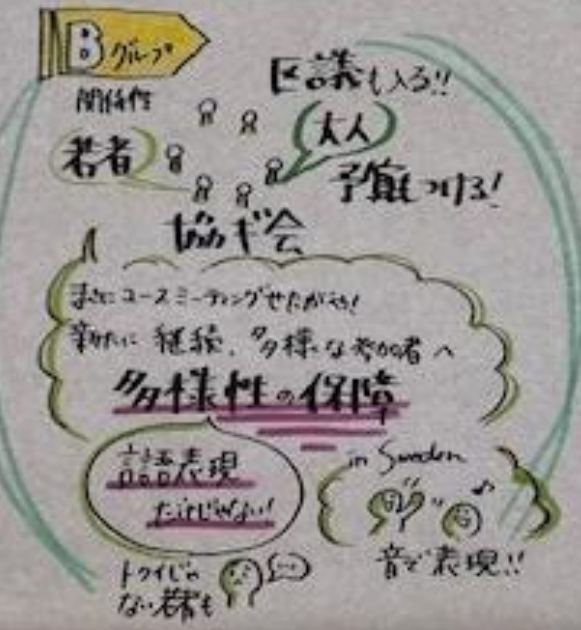 Bグループ
区議も入る!!
関係性
大人
若者
予算もつける!
協ギ会
まさにユースミーティングせたがや!
新たに継続、多様な参加者へ
多様性の保障
言語表現
だけじゃない!
in Sweden
音で表現!!
トクイじゃ
ない若者も